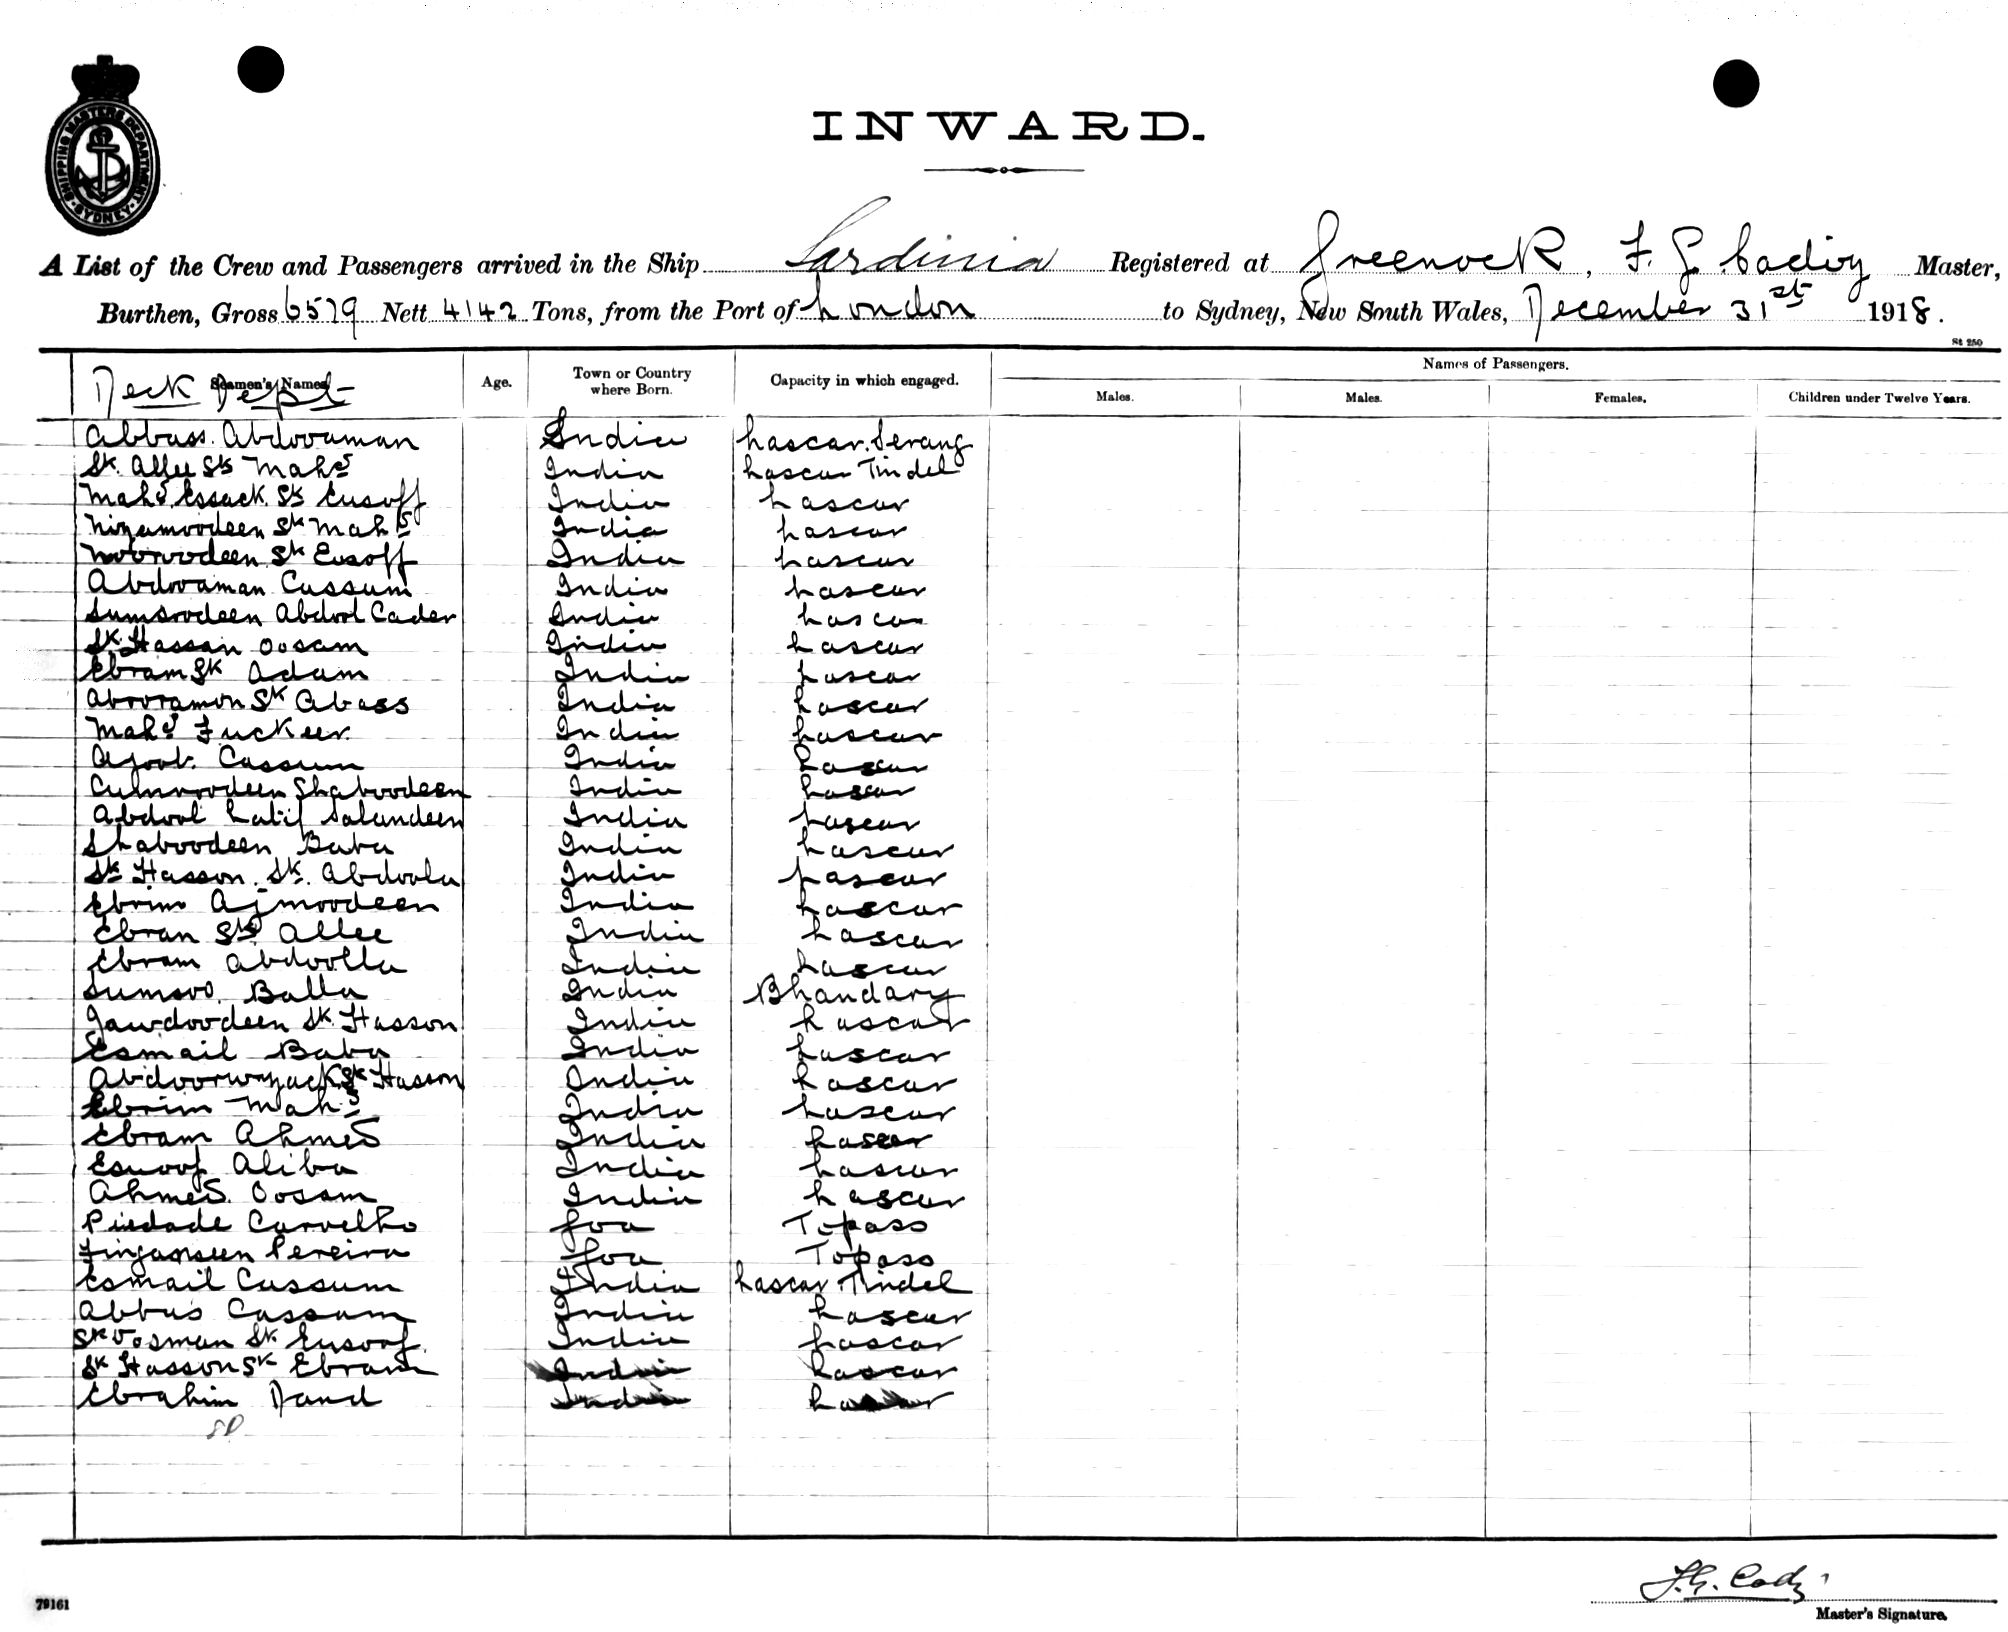 SHIPPING MASTERS DEPARTMENT SYDNEY
INWARD.
A List of the Crew and Passengers arrived in the Ship Sardinia Registered at Greenock, F. G. Cadiy Master,
Burthen, Gross 6579 Nett 4142 Tons, from the Port of London to Sydney, New South Wales, December 31st 1918.
St 250
Seamen's Names. Age. Town or Country where Born. Capacity in which engaged. Names of Passengers.
Males. Males. Females. Children under Twelve Years.
Deck Dept
Abbass. Abdooaman India Lascar. Serang
Sk. Allee Sk Mahd India Lascar Tindel
Mahd. Essack. Sk Eusoff India Lascar
Nizamoodeen Sk Mahd India Lascar
Nooroodeen Sk Eusoff India Lascar
Abdooaman Cussum India Lascar
Sumsoodeen Abdool Cader India Lascar
Sk. Hassan Oosam India Lascar
Ebram Sk Adam India Lascar
Abooramon Sk Abass India Lascar
Mahd Fuckeer India Lascar
Ajoob. Cassum India Lascar
Cumroodeen Shaboodeen India Lascar
Abdool Latif Salundeen India Lascar
Shaboodeen Baba India Lascar
Sk Hasson. Sk. Abdoola India Lascar
Ebrim Ajmoodeen India Lascar
Ebran Sk Allee India Lascar
Ebram Abdoolla India Lascar
Sumsoo. Balla India Bhandary
Jawdoodeen Sk. Hasson India Lascar
Esmail Baba India Lascar
Sk Hasson India Lascar
Ebrim Mahd India Lascar
Ebram Ahmed India Lascar
Esoof Aliba India Lascar
Ahmed. Oosam India Lascar
Piedade Carvelho Goa Topass
Pereira Goa Topass
Esmail Cussum India Lascar Tindel
Abbas Cassum India Lascar
Sk Oosman Sk. Eusoof India Lascar
Sk Hasson Sk Ebram India Lascar
Ebrahim Daud India Lascar
79161
F. G. Cadiy
Master's Signature.